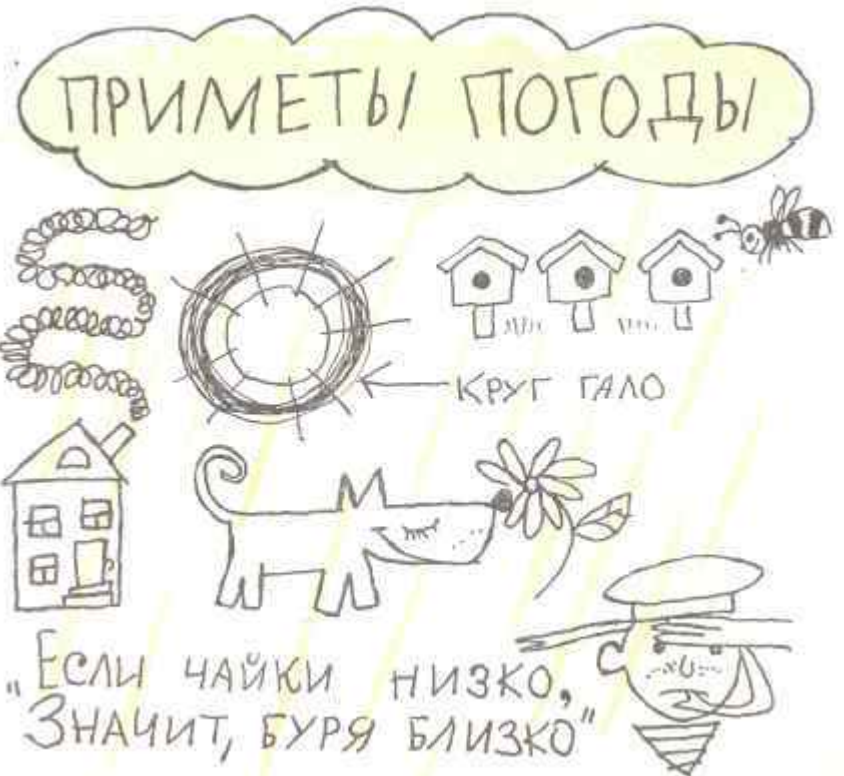 ПРИМЕТЫ ПОГОДЫ
КРУГ ГАЛО
„ЕСЛИ ЧАЙКИ НИЗКО,
ЗНАЧИТ, БУРЯ БЛИЗКО"